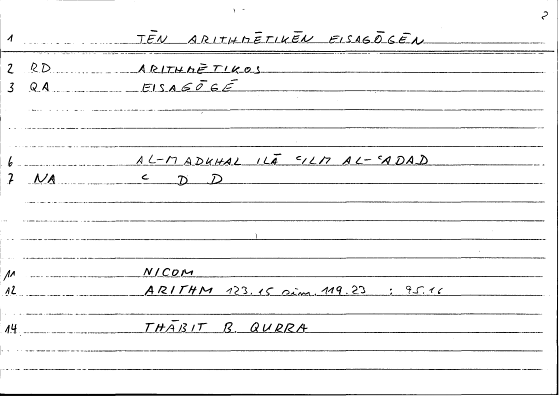 2
1 TĒN ARITHMĒTIKĒN EISAGŌGĒN
2 RD ARITHMĒTIKOS
3 QA EISAGŌGĒ
6 AL-MADKHAL ILĀ ʿILM AL-ʿADAD
7 NA ʿ D D
11 NICOM
12 ARITHM 123.15 sim. 119.23 : 95.16
14 THĀBIT B. QURRA